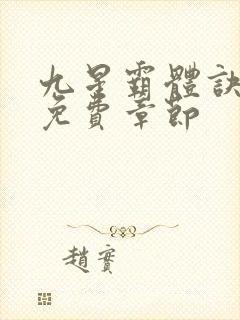 九星霸體訣
免費章節
趙實